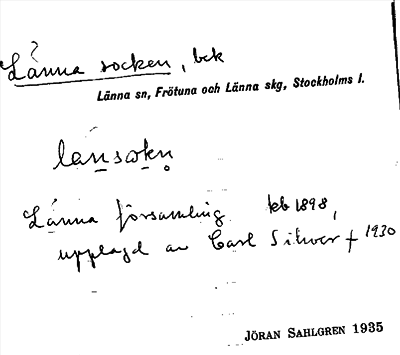 Länna socken, bek
Länna sn, Frötuna och Länna skg, Stockholms l.
länsokn
Länna församling kb 1898,
upplagd av Carl Silwer † 1930
JÖRAN SAHLGREN 1935